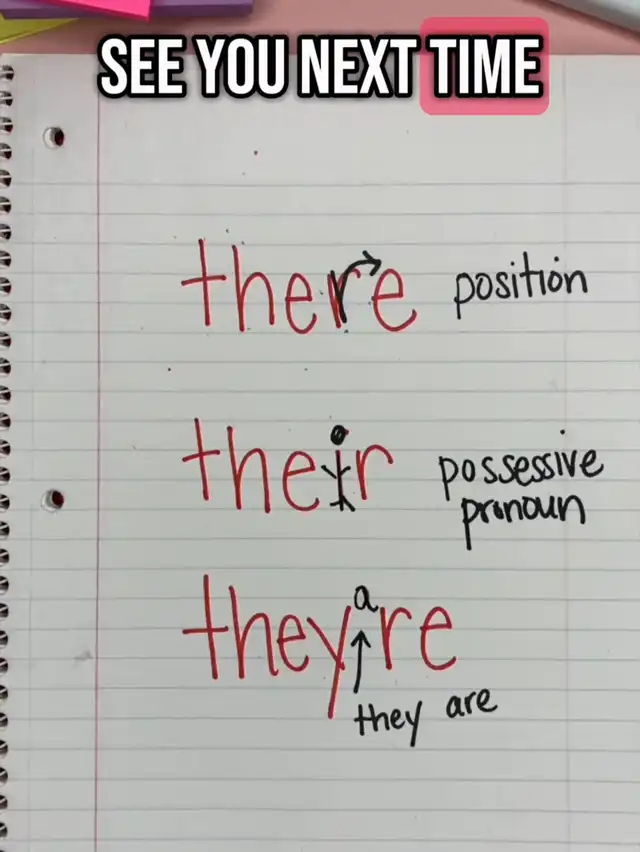 SEE YOU NEXT TIME
there position
their possessive
pronoun
they're
a
they are